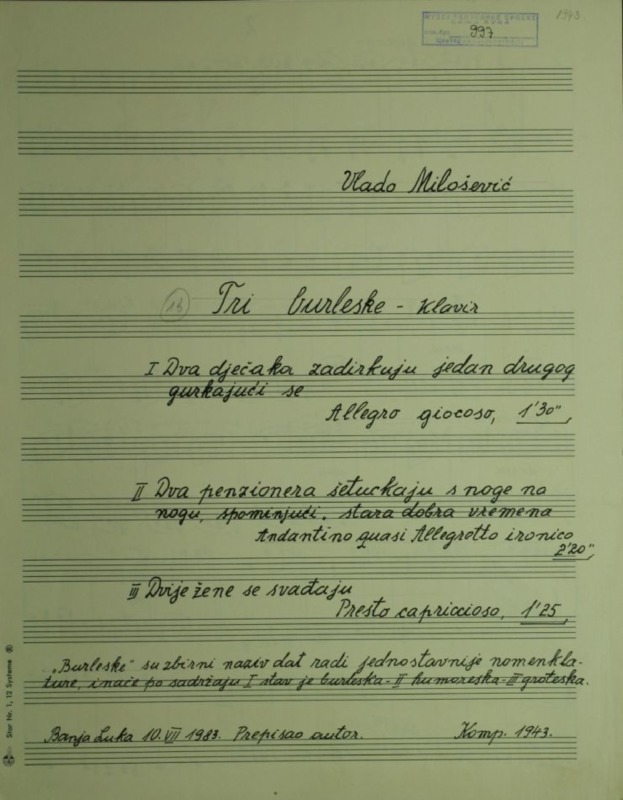 1943.
997
Vlado Milošević
13 Tri burleske - Klavir
I Dva dječaka zadirkuju jedan drugog
gurkajući se
Allegro giocoso, 1'30",
II Dva penzionera šetuckaju s noge na
nogu, spominjući, stara dobra vremena
Andantino quasi Allegretto ironico
2'20",
III Dvije žene se svađaju
Presto capriccioso, 1'25,
„Burleske" su zbirni naziv dat radi jednostavnije nomenkla-
ture, inače po sadržaju I stav je burleska - II humoreska - III groteska.
Banja Luka 10. VII 1983. Prepisao autor. Komp. 1943.
Star Nr. 1, 12 Systeme